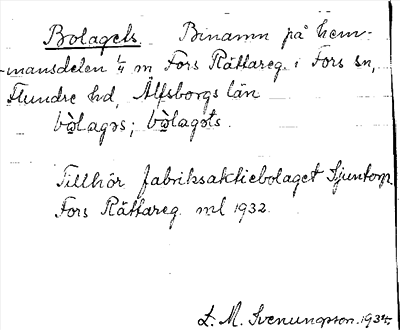 Bolagets. Binamn på hem-
mansdelen 1/4 m Fors Rättareg. i Fors sn,
Flundre hd, Älfsborgs län
bòlagəs; bòlagəts.
Tillhör fabriksaktiebolaget Sjuntorp.
Fors Rättareg. ml 1932.
L. M. Svenungsson. 1934.